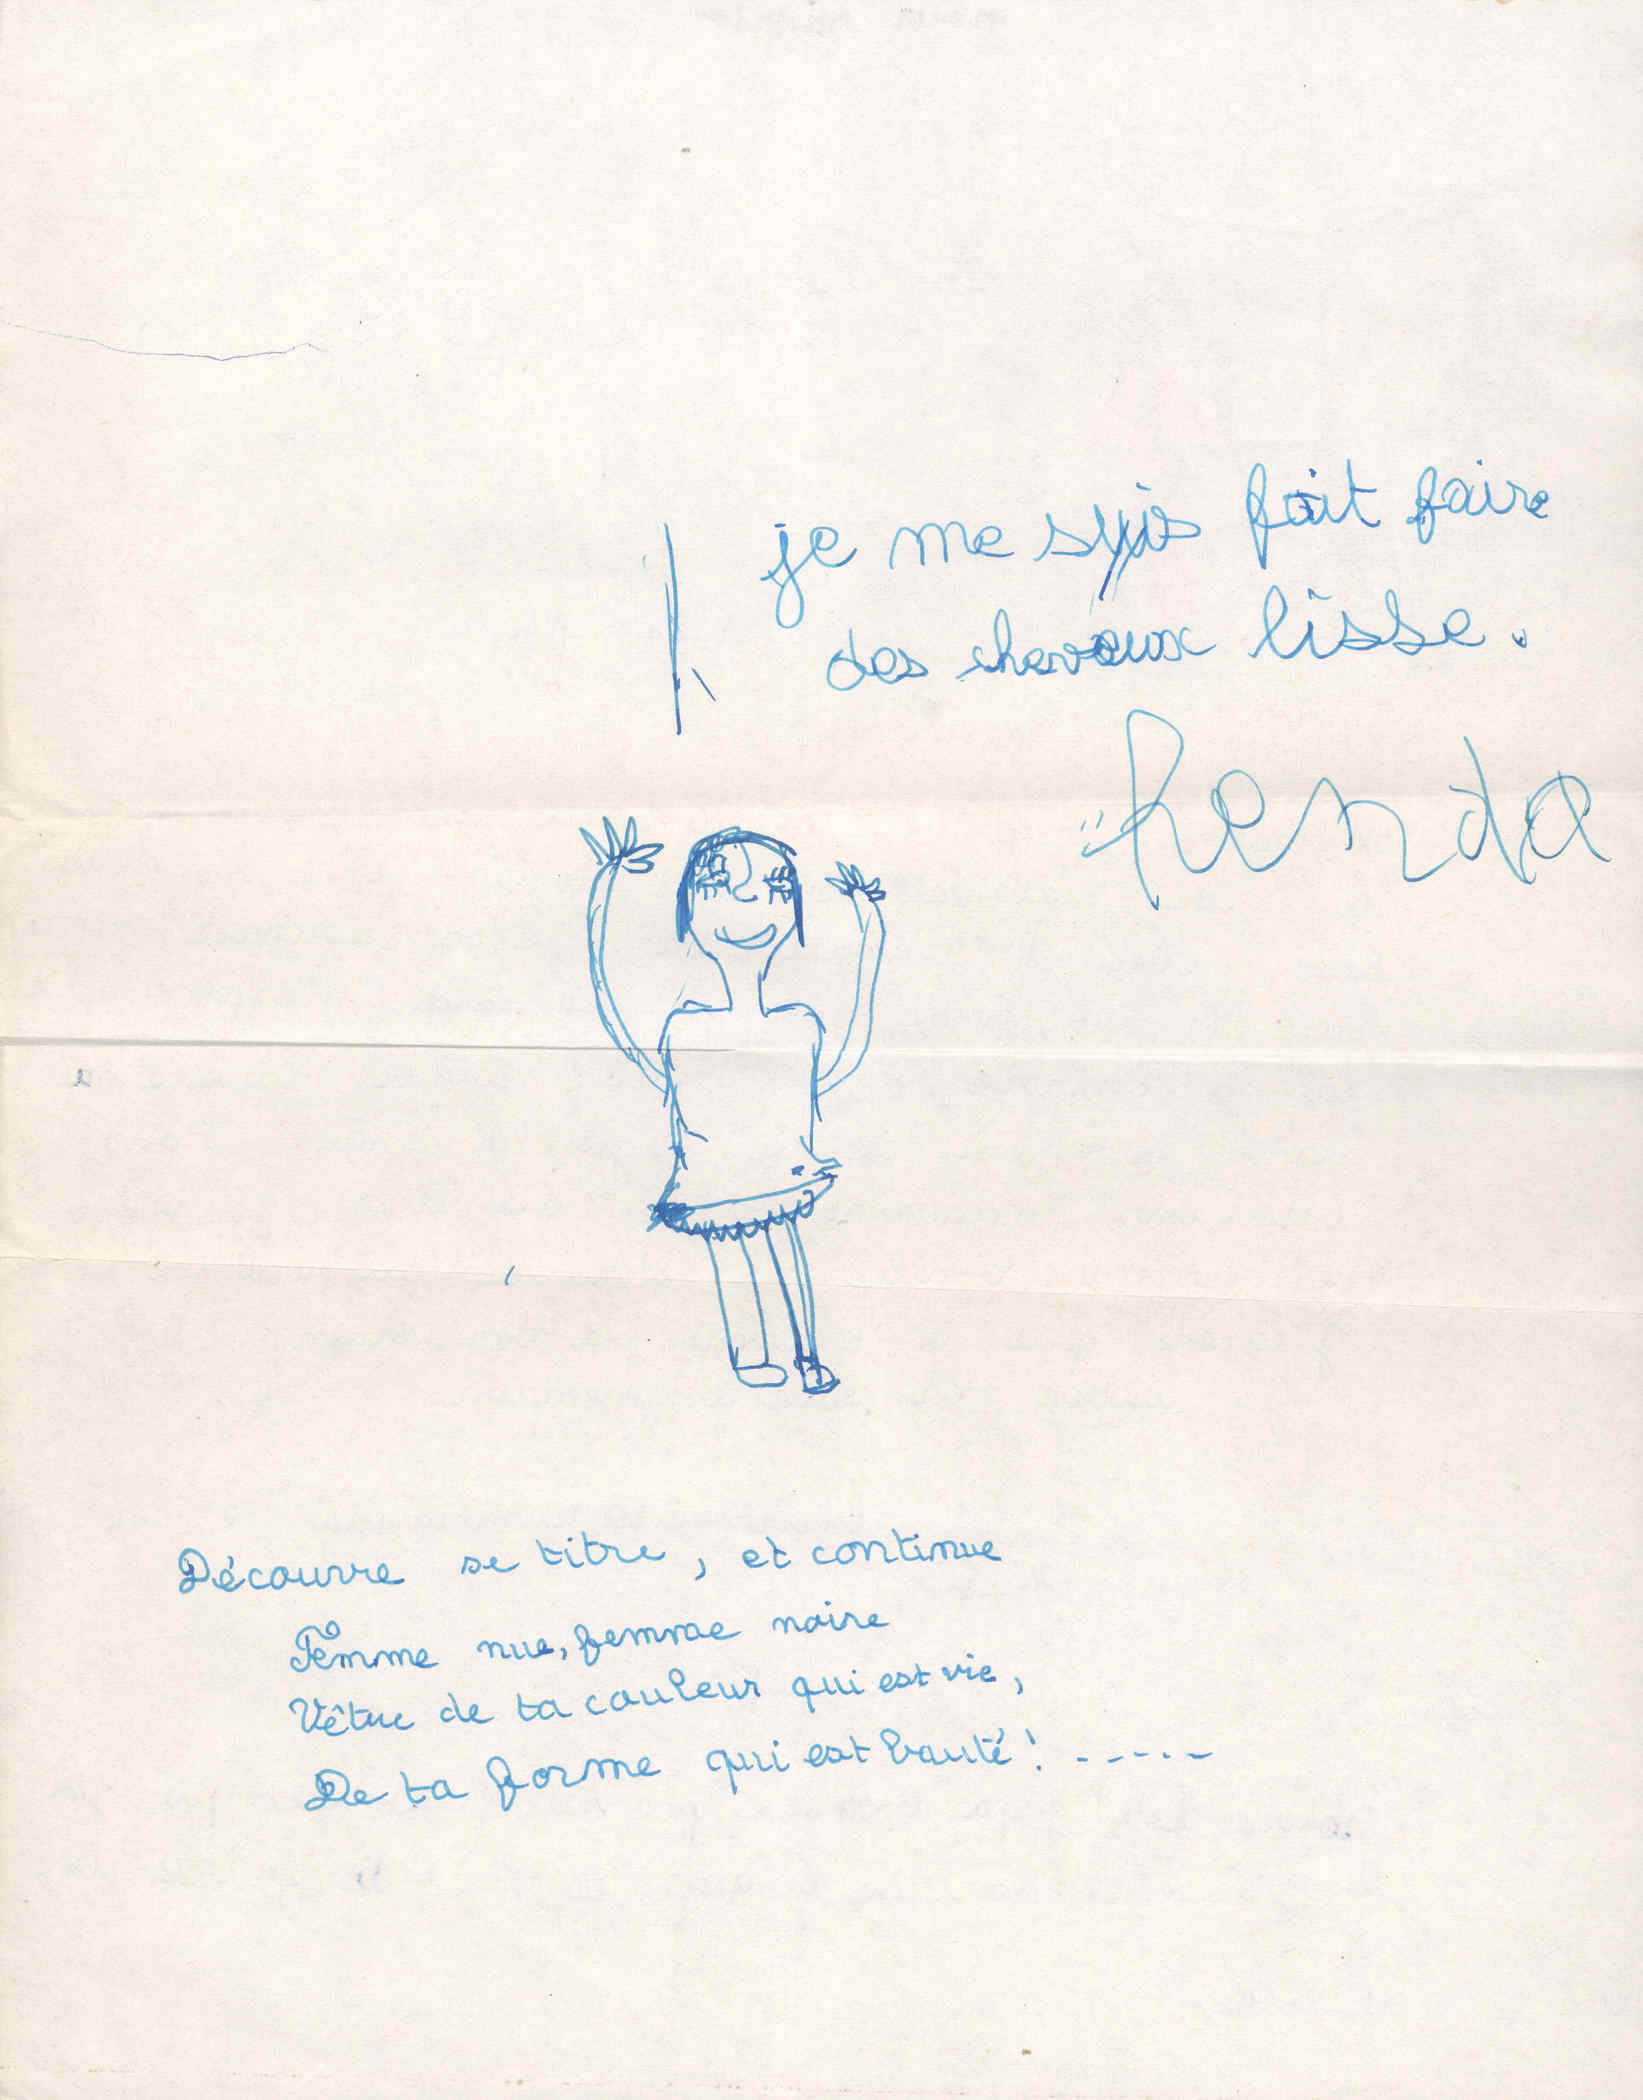 je me suis fait faire
des cheveux lisse.
henda
Découvre se titre, et continue
Femme nue, femme noire
Vêtue de ta couleur qui est vie,
De ta forme qui est bauté! -----